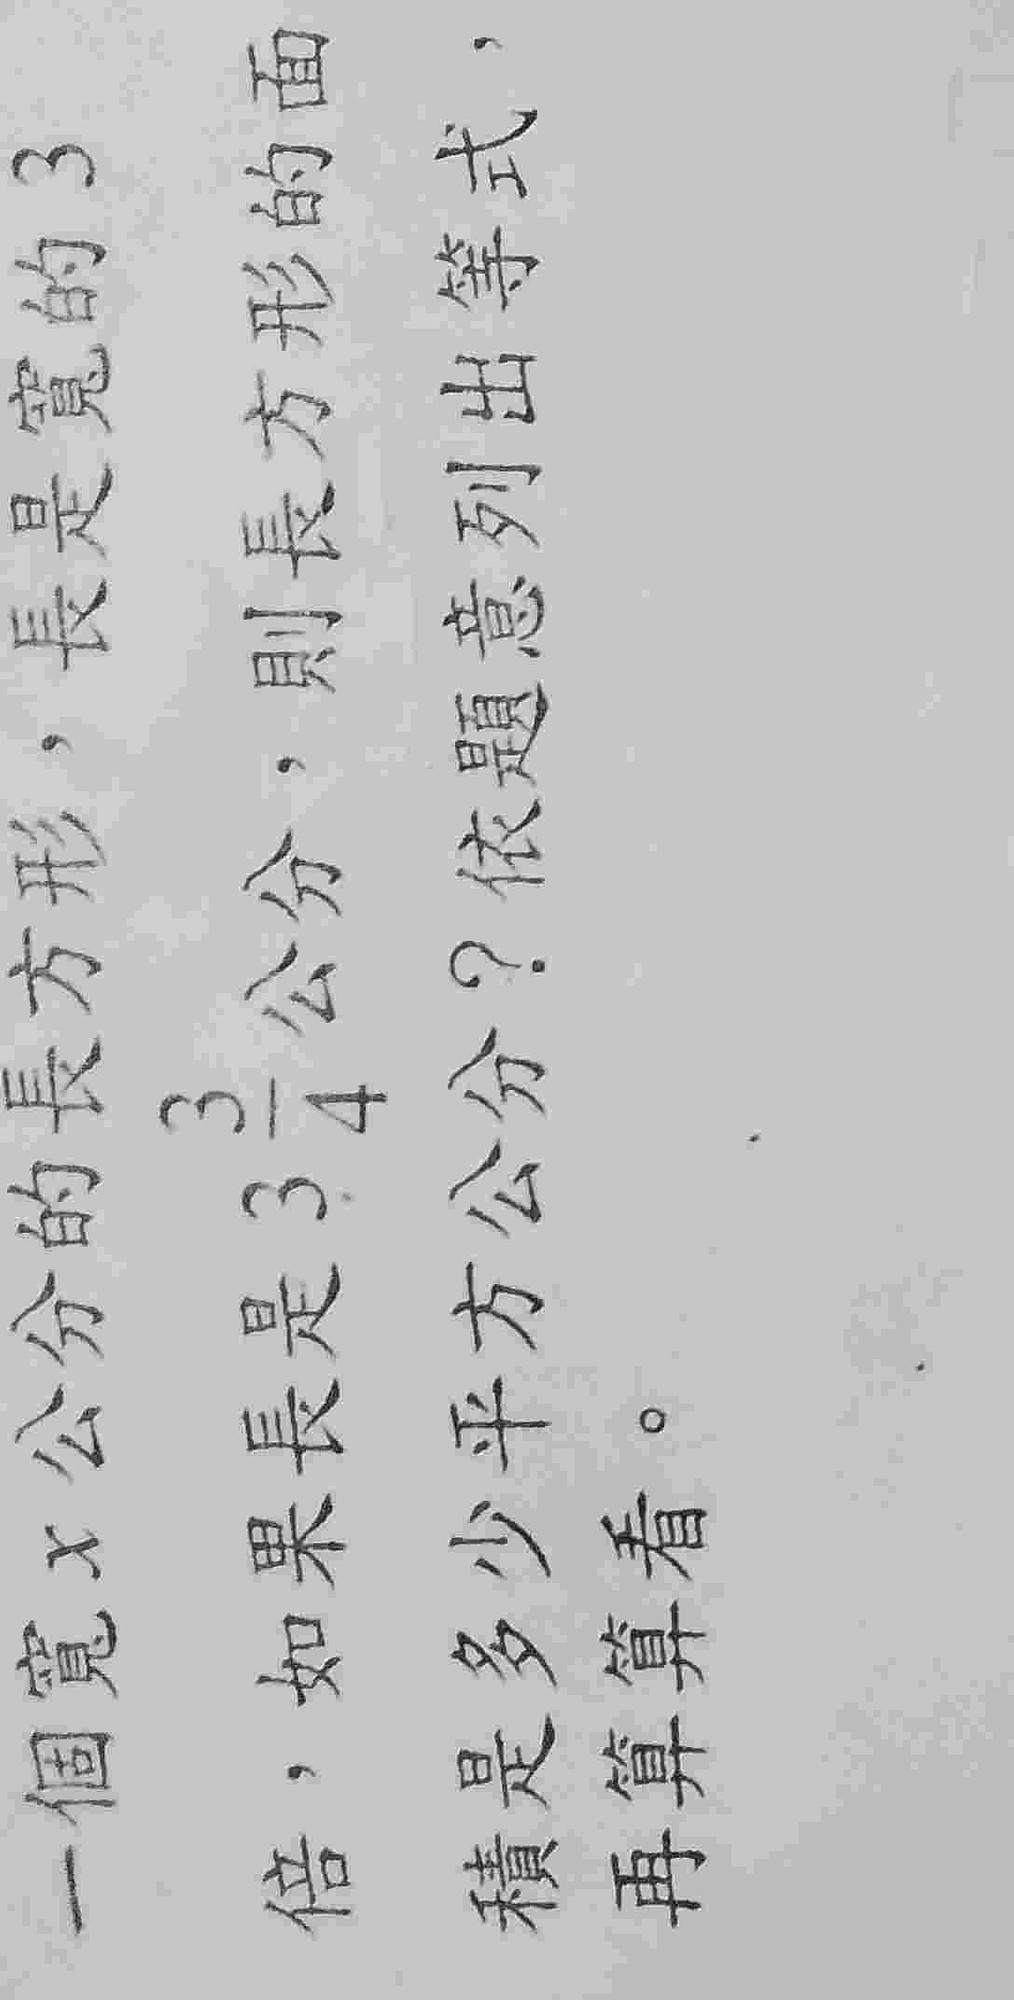 一個寬x公分的長方形，長是寬的3
倍，如果長是3 3/4公分，則長方形的面
積是多少平方公分？依題意列出等式，
再算算看。